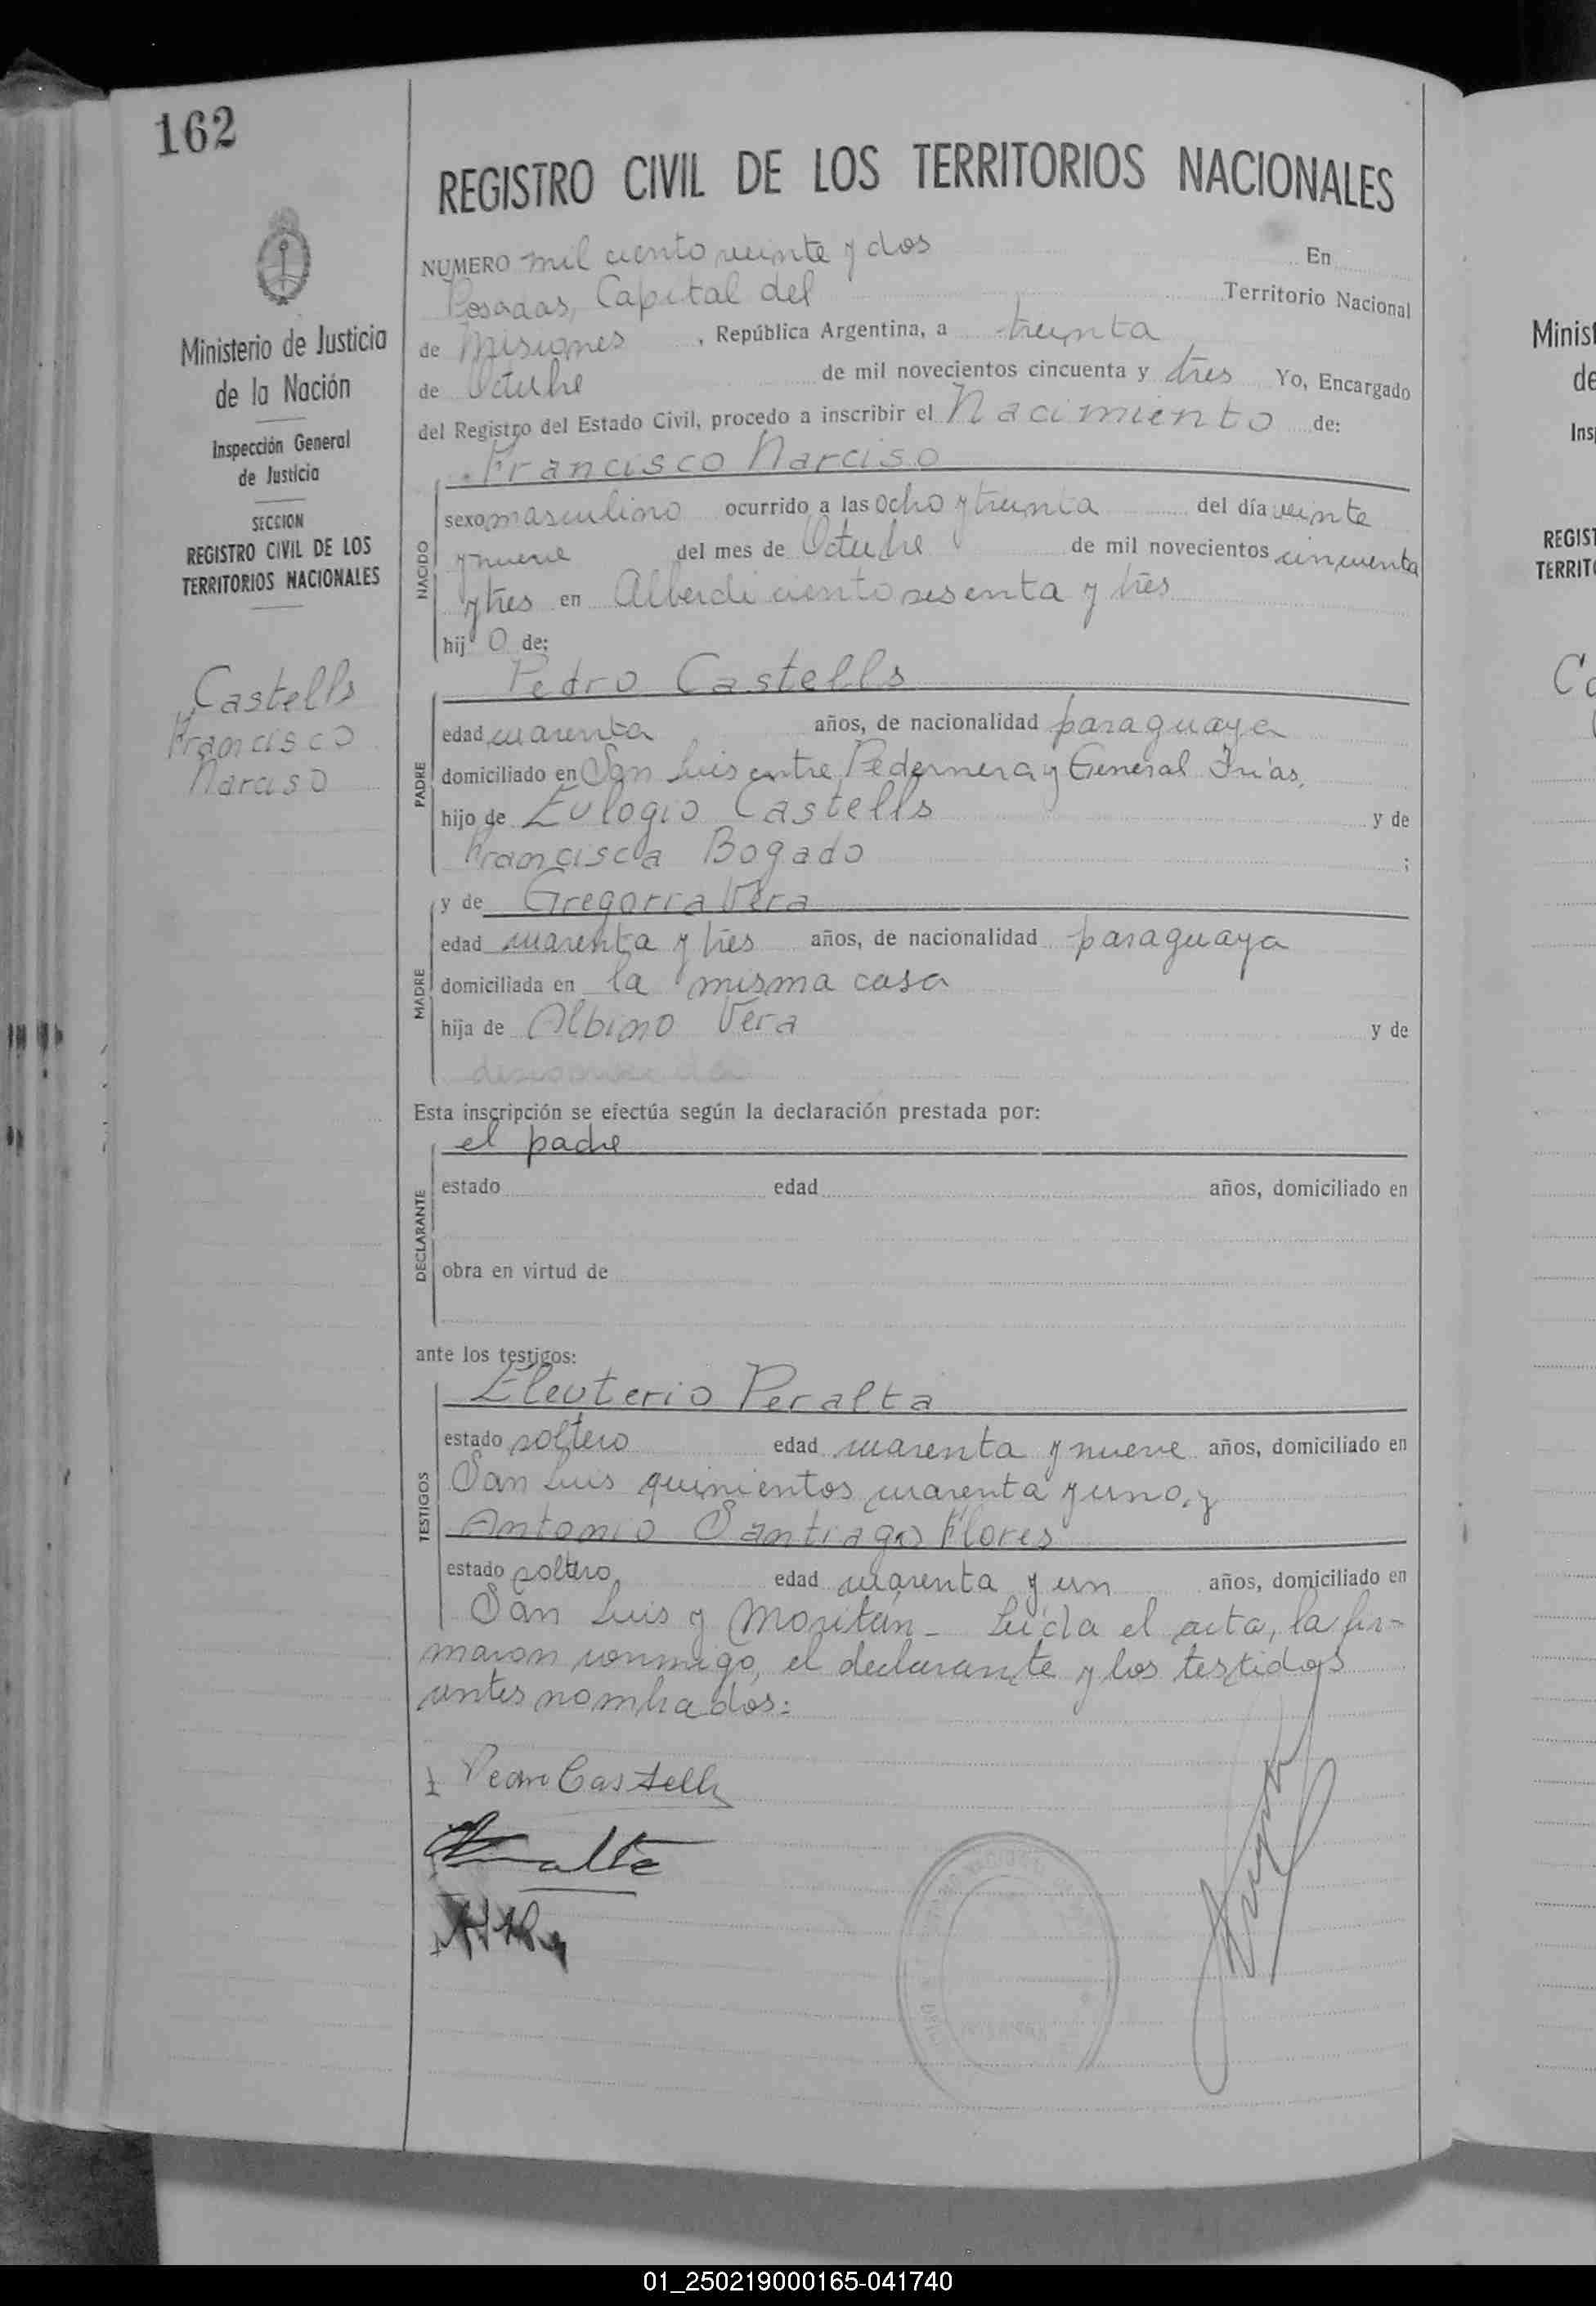 162
REGISTRO CIVIL DE LOS TERRITORIOS NACIONALES
NUMERO mil ciento veinte y dos En
Posadas, Capital del Territorio Nacional
de Misiones, República Argentina, a treinta
de Octubre de mil novecientos cincuenta y tres Yo, Encargado
del Registro del Estado Civil, procedo a inscribir el Nacimiento de:
Francisco Narciso
sexo masculino ocurrido a las ocho y treinta del día veinte
y nueve del mes de Octubre de mil novecientos cincuenta
y tres en Alberdi ciento sesenta y tres
hijo de:
NACIDO
Pedro Castells
edad cuarenta años, de nacionalidad paraguaya
domiciliado en San Luis entre Pedernera y General Frías,
hijo de Eulogio Castells y de
Francisca Bogado ;
PADRE
y de Gregoria Vera
edad cuarenta y tres años, de nacionalidad paraguaya
domiciliada en la misma casa
hija de Albino Vera y de
desconocida
MADRE
Esta inscripción se efectúa según la declaración prestada por:
el padre
estado edad años, domiciliado en
obra en virtud de
DECLARANTE
ante los testigos:
Eleuterio Peralta
estado soltero edad cuarenta y nueve años, domiciliado en
San Luis quinientos cuarenta y uno, y
Antonio Santiago Flores
estado soltero edad cuarenta y un años, domiciliado en
San Luis y Moritán - Leída el acta, la fir-
maron conmigo, el declarante y los testidos
antes nombrados:
TESTIGOS
Pedro Castells
Ministerio de Justicia
de la Nación
Inspección General
de Justicia
SECCION
REGISTRO CIVIL DE LOS
TERRITORIOS NACIONALES
Castells
Francisco
Narciso
Minist
de
Ins
REGIST
TERRITO
Ca
01_250219000165-041740